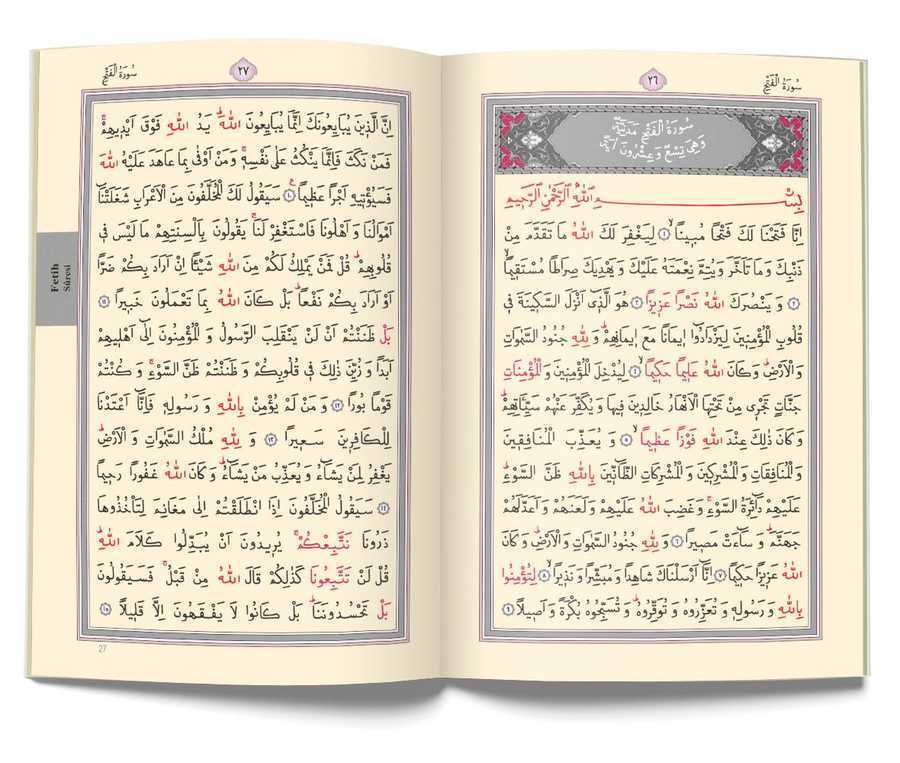 سُورَةُ الْفَتْحِ
٢٦
سُورَةُ الْفَتْحِ مَدَنِيَّةٌ
وَهِيَ تِسْعٌ وَعِشْرُونَ اٰيَةً
بِسْمِ اللّٰهِ الرَّحْمٰنِ الرَّحِيمِ
اِنَّا فَتَحْنَا لَكَ فَتْحًا مُبِينًاۙ ﴿١﴾ لِيَغْفِرَ لَكَ اللّٰهُ مَا تَقَدَّمَ مِنْ
ذَنْبِكَ وَمَا تَاَخَّرَ وَيُتِمَّ نِعْمَتَهُ عَلَيْكَ وَيَهْدِيَكَ صِرَاطًا مُسْتَقِيمًاۙ
﴿٢﴾ وَيَنْصُرَكَ اللّٰهُ نَصْرًا عَزِيزًا ﴿٣﴾ هُوَ الَّذ۪ٓي اَنْزَلَ السَّكِينَةَ فِي
قُلُوبِ الْمُؤْمِنِينَ لِيَزْدَادُٓوا اِيمَانًا مَعَ اِيمَانِهِمْۜ وَلِلّٰهِ جُنُودُ السَّمٰوَاتِ
وَالْاَرْضِۜ وَكَانَ اللّٰهُ عَلِيمًا حَكِيمًاۙ ﴿٤﴾ لِيُدْخِلَ الْمُؤْمِنِينَ وَالْمُؤْمِنَاتِ
جَنَّاتٍ تَجْرِي مِنْ تَحْتِهَا الْاَنْهَارُ خَالِدِينَ فِيهَا وَيُكَفِّرَ عَنْهُمْ سَيِّـَٔاتِهِمْۜ
وَكَانَ ذٰلِكَ عِنْدَ اللّٰهِ فَوْزًا عَظِيمًاۙ ﴿٥﴾ وَيُعَذِّبَ الْمُنَافِقِينَ
وَالْمُنَافِقَاتِ وَالْمُشْرِكِينَ وَالْمُشْرِكَاتِ الظَّٓانِّينَ بِاللّٰهِ ظَنَّ السَّوْءِۜ
عَلَيْهِمْ دَٓائِرَةُ السَّوْءِۚ وَغَضِبَ اللّٰهُ عَلَيْهِمْ وَلَعَنَهُمْ وَاَعَدَّ لَهُمْ
جَهَنَّمَۜ وَسَٓاءَتْ مَصِيرًا ﴿٦﴾ وَلِلّٰهِ جُنُودُ السَّمٰوَاتِ وَالْاَرْضِۜ وَكَانَ
اللّٰهُ عَزِيزًا حَكِيمًا ﴿٧﴾ اِنَّٓا اَرْسَلْنَاكَ شَاهِدًا وَمُبَشِّرًا وَنَذِيرًاۙ ﴿٨﴾ لِتُؤْمِنُوا
بِاللّٰهِ وَرَسُولِهِ وَتُعَزِّرُوهُ وَتُوَقِّرُوهُۜ وَتُسَبِّحُوهُ بُكْرَةً وَاَصِيلًا ﴿٩﴾
سُورَةُ الْفَتْحِ
٢٧
اِنَّ الَّذِينَ يُبَايِعُونَكَ اِنَّمَا يُبَايِعُونَ اللّٰهَۜ يَدُ اللّٰهِ فَوْقَ اَيْدِيهِمْۚ
فَمَنْ نَكَثَ فَاِنَّمَا يَنْكُثُ عَلٰى نَفْسِهِۚ وَمَنْ اَوْفٰى بِمَا عَاهَدَ عَلَيْهُ اللّٰهَ
فَسَيُؤْتِيهِ اَجْرًا عَظِيمًا ﴿١٠﴾ سَيَقُولُ لَكَ الْمُخَلَّفُونَ مِنَ الْاَعْرَابِ شَغَلَتْنَٓا
اَمْوَالُنَا وَاَهْلُونَا فَاسْتَغْفِرْ لَنَاۚ يَقُولُونَ بِاَلْسِنَتِهِمْ مَا لَيْسَ فِي
قُلُوبِهِمْۜ قُلْ فَمَنْ يَمْلِكُ لَكُمْ مِنَ اللّٰهِ شَيْـًٔا اِنْ اَرَادَ بِكُمْ ضَرًّا
اَوْ اَرَادَ بِكُمْ نَفْعًاۜ بَلْ كَانَ اللّٰهُ بِمَا تَعْمَلُونَ خَبِيرًا ﴿١١﴾
بَلْ ظَنَنْتُمْ اَنْ لَنْ يَنْقَلِبَ الرَّسُولُ وَالْمُؤْمِنُونَ اِلٰٓى اَهْلِيهِمْ
اَبَدًا وَزُيِّنَ ذٰلِكَ فِي قُلُوبِكُمْ وَظَنَنْتُمْ ظَنَّ السَّوْءِۚ وَكُنْتُمْ
قَوْمًا بُورًا ﴿١٢﴾ وَمَنْ لَمْ يُؤْمِنْ بِاللّٰهِ وَرَسُولِهِ فَاِنَّٓا اَعْتَدْنَا
لِلْكَافِرِينَ سَعِيرًا ﴿١٣﴾ وَلِلّٰهِ مُلْكُ السَّمٰوَاتِ وَالْاَرْضِۜ
يَغْفِرُ لِمَنْ يَشَٓاءُ وَيُعَذِّبُ مَنْ يَشَٓاءُۜ وَكَانَ اللّٰهُ غَفُورًا رَحِيمًا
﴿١٤﴾ سَيَقُولُ الْمُخَلَّفُونَ اِذَا انْطَلَقْتُمْ اِلٰى مَغَانِمَ لِتَأْخُذُوهَا
ذَرُونَا نَتَّبِعْكُمْۚ يُرِيدُونَ اَنْ يُبَدِّلُوا كَلَامَ اللّٰهِۜ
قُلْ لَنْ تَتَّبِعُونَا كَذٰلِكُمْ قَالَ اللّٰهُ مِنْ قَبْلُۚ فَسَيَقُولُونَ
بَلْ تَحْسُدُونَنَاۜ بَلْ كَانُوا لَا يَفْقَهُونَ اِلَّا قَلِيلًا ﴿١٥﴾
27
Fetih
Sûresi